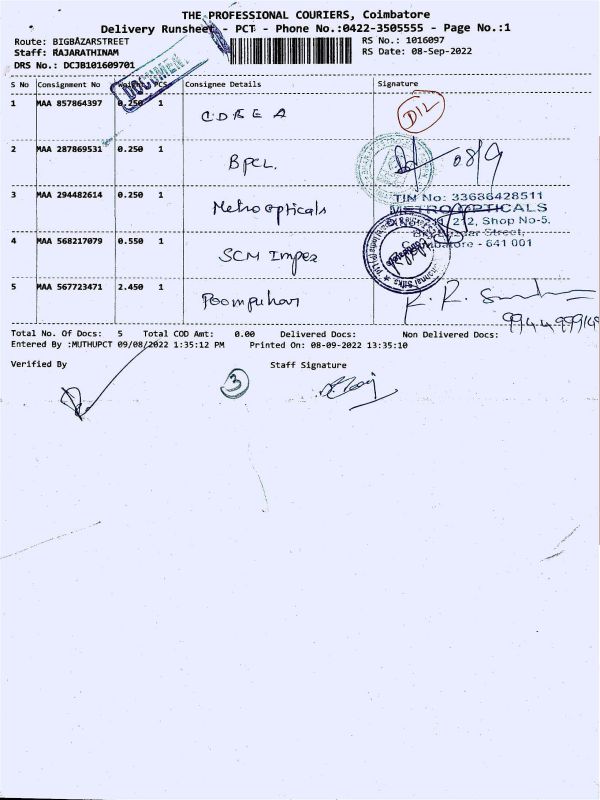 THE PROFESSIONAL COURIERS, Coimbatore
Delivery Runsheet - PCT - Phone No.:0422-3505555 - Page No.:1
Route: BIGBAZARSTREET
RS No.: 1016097
Staff: RAJARATHINAM
RS Date: 08-Sep-2022
DRS No.: DCJB101609701
DOCUMENT
S No Consignment No PCS Consignee Details Signature
1 MAA 857864397 0.250 1 CDBEA D12
2 MAA 287869531 0.250 1 BPCL 08/9
3 MAA 294482614 0.250 1 Metro opticals
TIN No: 33686428511
METRO OPTICALS
212, Shop No-5.
Street,
Coimbatore - 641 001
4 MAA 568217079 0.550 1 SCM Impex
5 MAA 567723471 2.450 1 Poompuhar
Total No. Of Docs: 5 Total COD Amt: 0.00 Delivered Docs: Non Delivered Docs:
Entered By :MUTHUPCT 09/08/2022 1:35:12 PM Printed On: 08-09-2022 13:35:10
Verified By Staff Signature
3